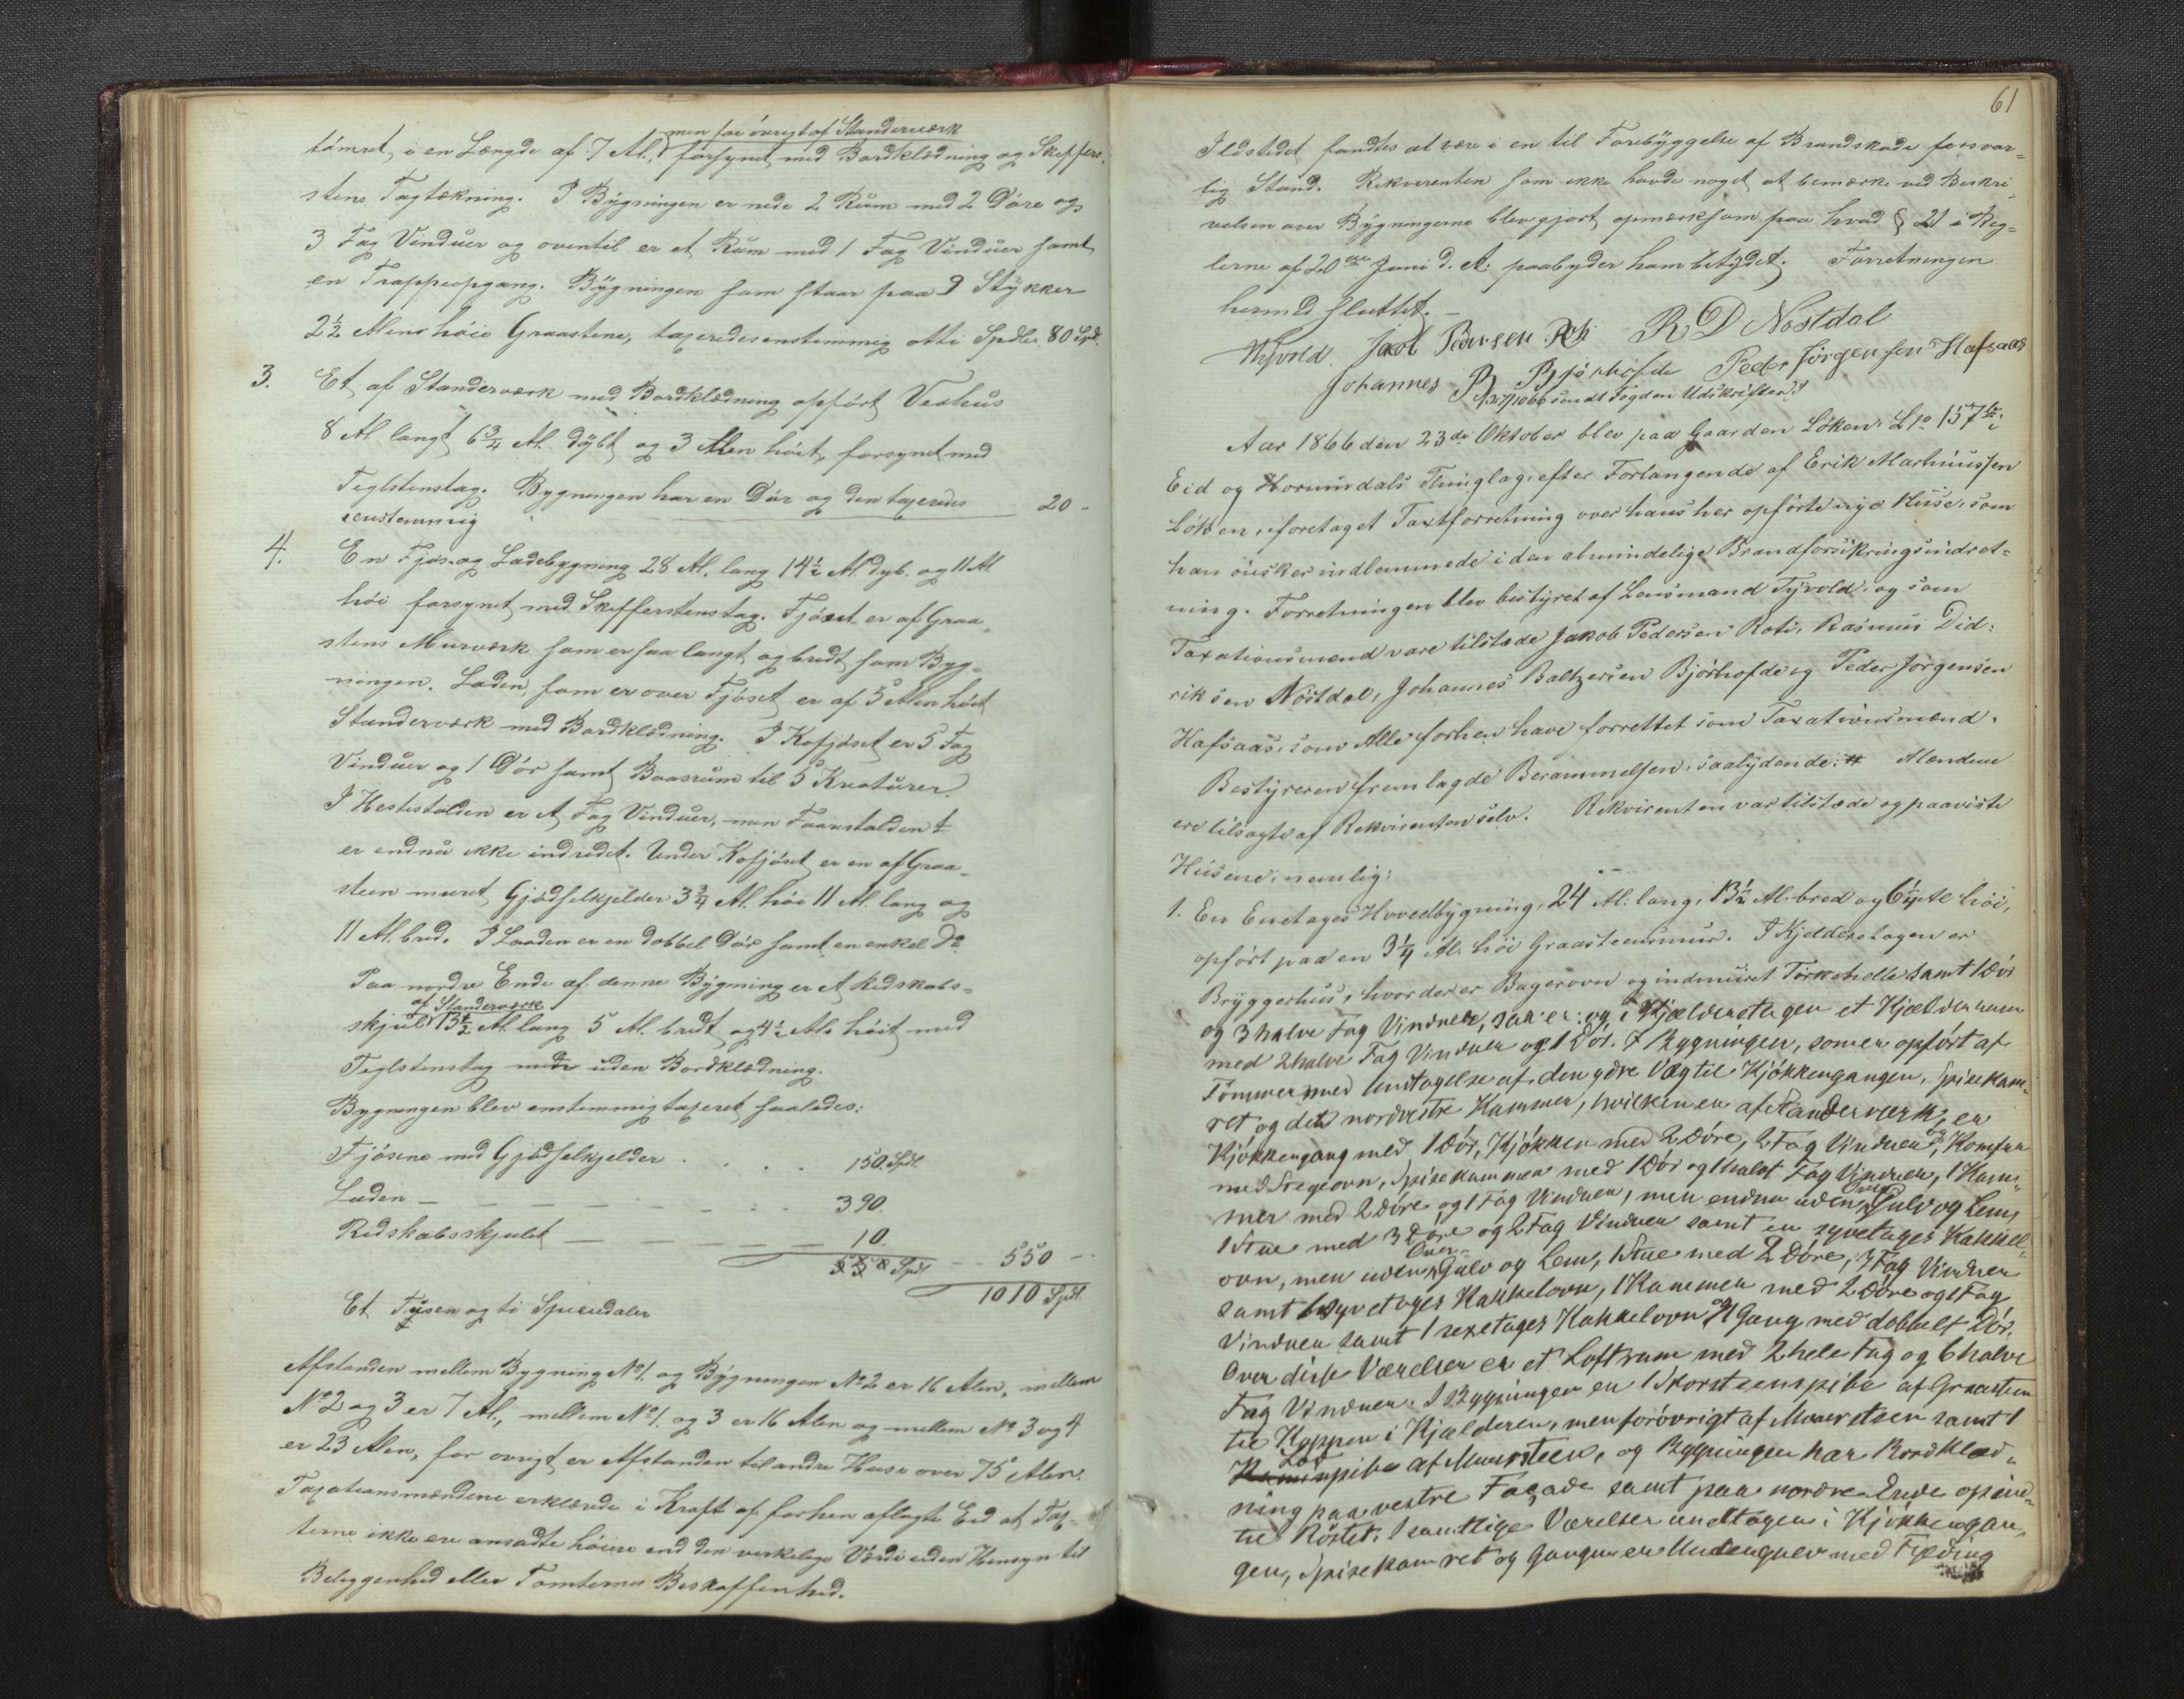 men for övrigt af Standerværk
tömret, i en Længde af 7 Al., forsynet med Bordklædning og Skiffer-
stens Tagtækning. I Bÿgningen er nede 2 Rum med 2 Döre og
3 Fag Vinduer og oventil er et Rum med 1 Fag Vinduer samt
en Trappeopgang. Bÿgningen som staar paa 9 Stÿkker
2½ Alens höie Graastene, taxeredes enstemmig otti Spdlr. 80 Spd.
3. Et af Standerværk med Bordklædning opfört Vedhus
8 Al. langt 6¾ Al. dÿbt og 3 Alen höit, forsynet med
Teglstenstag. Bygningen har en Dör og den taxeredes
eenstemmig 20 -
4. En Fjös- og Ladebygning 28 Al. lang 14½ Al. dyb. og 11 Al.
höi forsynet med Skifferstenstag. Fjöset er af Graa-
stens Murværk som er saa langt og bredt som Byg-
ningen. Laden, som er over Fjöset er af 5 Alen höit
Standerværk med Bordklædning. I Kofjöset er 5 Fag
Vinduer og 1 Dör samt Baasrum til 5 Kreaturer.
I Hestestalden er et Fag Vinduer, men Faarestalden
er endnu ikke indredet. Under Kofjöset er en af Graa-
steen muret Gjödselkjelder 3¾ Al. höi 11 Al. lang og
11 Al. bred. I Laaden er en dobbel Dör samt en enkel Do.
Paa nordre Ende af denne Bÿgning er et Redskabs-
af Standerværk
skjul 13½ Al. lang 5 Al. bredt og 4½ Al. höit med
Teglstenstag uden Bordklædning.
Bygningen blev enstemmig taxeret saaledes:
Fjösene med Gjödselkjelder . . . . 150. Spdl.
Laden — — — — — — — 390.
Redskabsskjulet — — — — — — 10.
550 Spdl — 550 —
1010 Spdl.
Et Tusen og ti Speciedaler
Afstanden mellem Bygning No 1. og Bÿgningen No 2 er 16 Alen, mellem
No 2 og 3 er 7 Al., mellem No 1. og 3 er 16 Alen og mellem No 3 og 4
er 23 Alen, for ovrigt er Afstanden til andre Huse over 75 Alen.
Taxationsmændene erklærede i Kraft af forhen aflagte Eed at Tax-
terne ikke ere ansadte höiere end den verkelige Værdi uden Hensyn til
Beliggenhed eller Tomternes Beskaffenhed.
61
Ildstedet fandtes at være i en til Forebÿggelse af Brandskade forsvar-
lig Stand. Rekvirenten som ikke havde noget at bemærke ved Beskri-
velsen over Bÿgningerne blev gjort opmærksom paa hvad § 21 i Reg-
lerne af 20de Juni d. A. paabyder ham betydet. Forretningen
hermed sluttet. —
Thfvold. Jacob Pedersen Roti R D Nöstdal
Johannes B Bjørhofde Peder Jörgensen Hafsaas
27/10 66 sendt Fogden Udskriften.
Aar 1866 den 23de Oktober blev paa Gaarden Löken, Lno 157 i
Eid og Hornindals Thinglag, efter Forlangende af Erik Marthinussen
Löken, foretaget Taxtforretning over hans her opförte nye Huse, som
han önsker indlemmede i den almindelige Brandforsikringsindret-
ning. Forretningen blev bestyret af Lensmand Tÿvold, og som
Taxationsmænd vare tilstede Jakob Pedersen Roti, Rasmus Did-
riksen Nöstdal, Johannes Baltzersen Bjørhofde og Peder Jörgensen
Hafsaas, som Alle forhen have forrettet som Taxationsmænd.
Bestÿreren fremlagde Berammelsen, saalÿdende: # Mændene
ere tilsagte af Rekvirenten selv. Rekvirenten var tilstæde og paaviste
Husene, nemlig:
1. En Enetages Hovedbÿgning, 24 Al. lang, 13½ Al. bred og 6¼ Al. höi,
opfört paa en 3¼ Al. höi Graasteensmur. I Kjelderetagen er
Brÿggerhus, hvor der er Bagerovn og indmuret Törkehelle samt 1 Dör
og 3 halve Fag Vinduer, saa er og i Kjælderetagen et Kjælderrum
med 2 halve Fag Vinduer og 1 Dör. I Bygningen, som er opfört af
Tömmer med Undtagelse af den ydre Væg til Kjökkengangen, Spisekam-
ret og det nordvestre Kammer, hvilken er af Standerværk, er
Kjökkengang med 1 Dör, Kjökken med 2 Döre, 2 Fag Vinduer og Komfur
med Stegeovn, Spisekammer med 1 Dör og 1 halvt Fag Vinduer, 1 Kam-
mer med 2 Döre og 1 Fag Vinduer, men endnu uden Over Gulv og Lem,
1 Stue med 3 Döre og 2 Fag Vinduer samt en syvetages Kakkel-
ovn, men uden Over Gulv og Lem, 1 Stue med 2 Döre, 3 Fag Vinduer
samt 1 syvetages Kakkelovn, 1 Kammer med 2 Döre og 1 Fag
Vinduer samt 1 sexetages Kakkelovn og 1 Gang med dobbelt Dör.
Over disse Værelser er et Loftrum med 2 hele Fag og 6 halve
Fag Vinduer. I Bygningen er 1 Skorsteenspibe af Graasteen
til Toppen i Kjælderen, men forövrigt af Muursteen samt 1
pibe af Muursteen, og Bygningen har Bordklæd-
ning paa vestre Façade samt paa nordre Ende op ind-
til Röstet. I samtlige Værelser undtagen i Kjökkengan-
gen, Spisekamret og Gangen er Undengulv med Fjæding